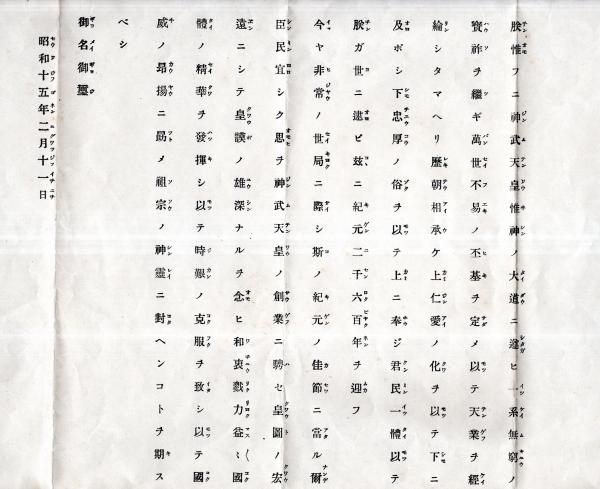 朕惟フニ神武天皇惟神ノ大道ニ遵ヒ一系無窮ノ
寶祚ヲ繼ギ萬世不易ノ丕基ヲ定メ以テ天業ヲ經
綸シタマヘリ歷朝相承ケ上仁愛ノ化ヲ以テ下ニ
及ボシ下忠厚ノ俗ヲ以テ上ニ奉ジ君民一體以テ
朕ガ世ニ逮ビ玆ニ紀元二千六百年ヲ迎フ
今ヤ非常ノ世局ニ際シ斯ノ紀元ノ佳節ニ當ル爾
臣民宜シク思ヲ神武天皇ノ創業ニ騁セ皇圖ノ宏
遠ニシテ皇謨ノ雄深ナルヲ念ヒ和衷戮力益〻國
體ノ精華ヲ發揮シ以テ時艱ノ克服ヲ致シ以テ國
威ノ昂揚ニ勗メ祖宗ノ神靈ニ對ヘンコトヲ期ス
ベシ
御名御璽
昭和十五年二月十一日